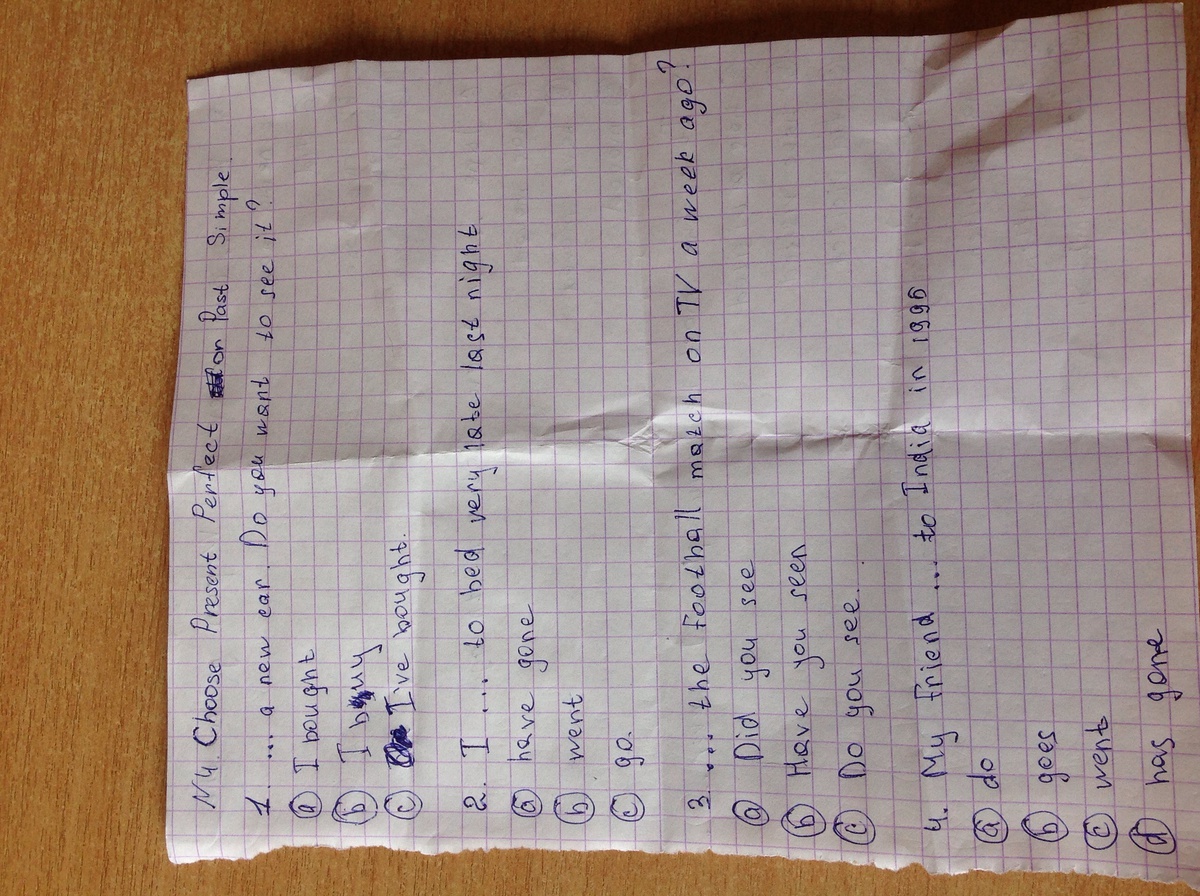 N4. Choose Present Perfect or Past Simple.
1. ... a new car. Do you want to see it?
a I bought
b I buy
c I've bought.
2. I .... to bed very late last night
a have gone
b went
c go.
3. .... the football match on TV a week ago?
a Did you see
b Have you seen
c Do you see.
4. My friend .... to India in 1996
a do
b goes
c went
d has gone